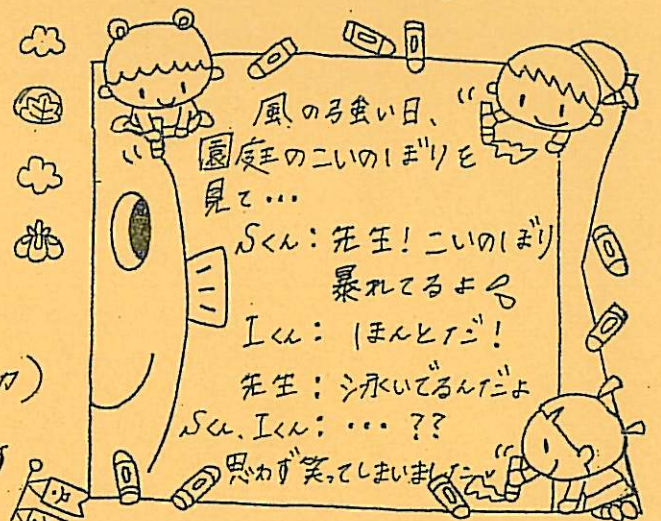 風の強い日、
園庭のこいのぼりを
見て・・・
Sくん：先生！こいのぼり
暴れてるよ
Iくん：ほんとだ！
先生：泳いでるんだよ
Sくん、Iくん：・・・??
思わず笑ってしまいました